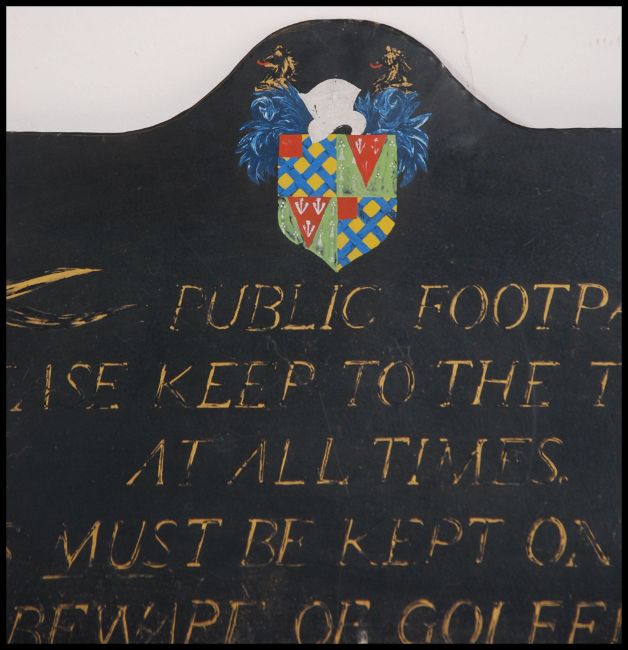 PUBLIC FOOTPA
EASE KEEP TO THE T
AT ALL TIMES.
S MUST BE KEPT ON
BEWARE OF GOLFE